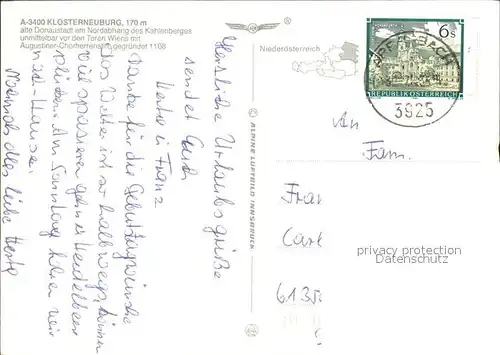 A-3400 KLOSTERNEUBURG, 170 m
alte Donaustadt am Nordabhang des Kahlenberges
unmittelbar vor den Toren Wiens mit
Augustiner-Chorherrenstift, gegründet 1108
Niederösterreich
6 S
REPUBLIK ÖSTERREICH
3925
© ALPINE LUFTBILD INNSBRUCK
Herzliche Urlaubsgrüße
sendet Euch
Herta u Franz
Danke für die Geburtstagswünsche
Das Wetter ist so halbwegs, können
viel spazieren gehen u Heidelbeer
pflücken. Am Sonntag fahren wir
nach Hause.
Nochmals alles liebe Herta
An
Fam.
Fran
Carl
6135
privacy protection
Datenschutz